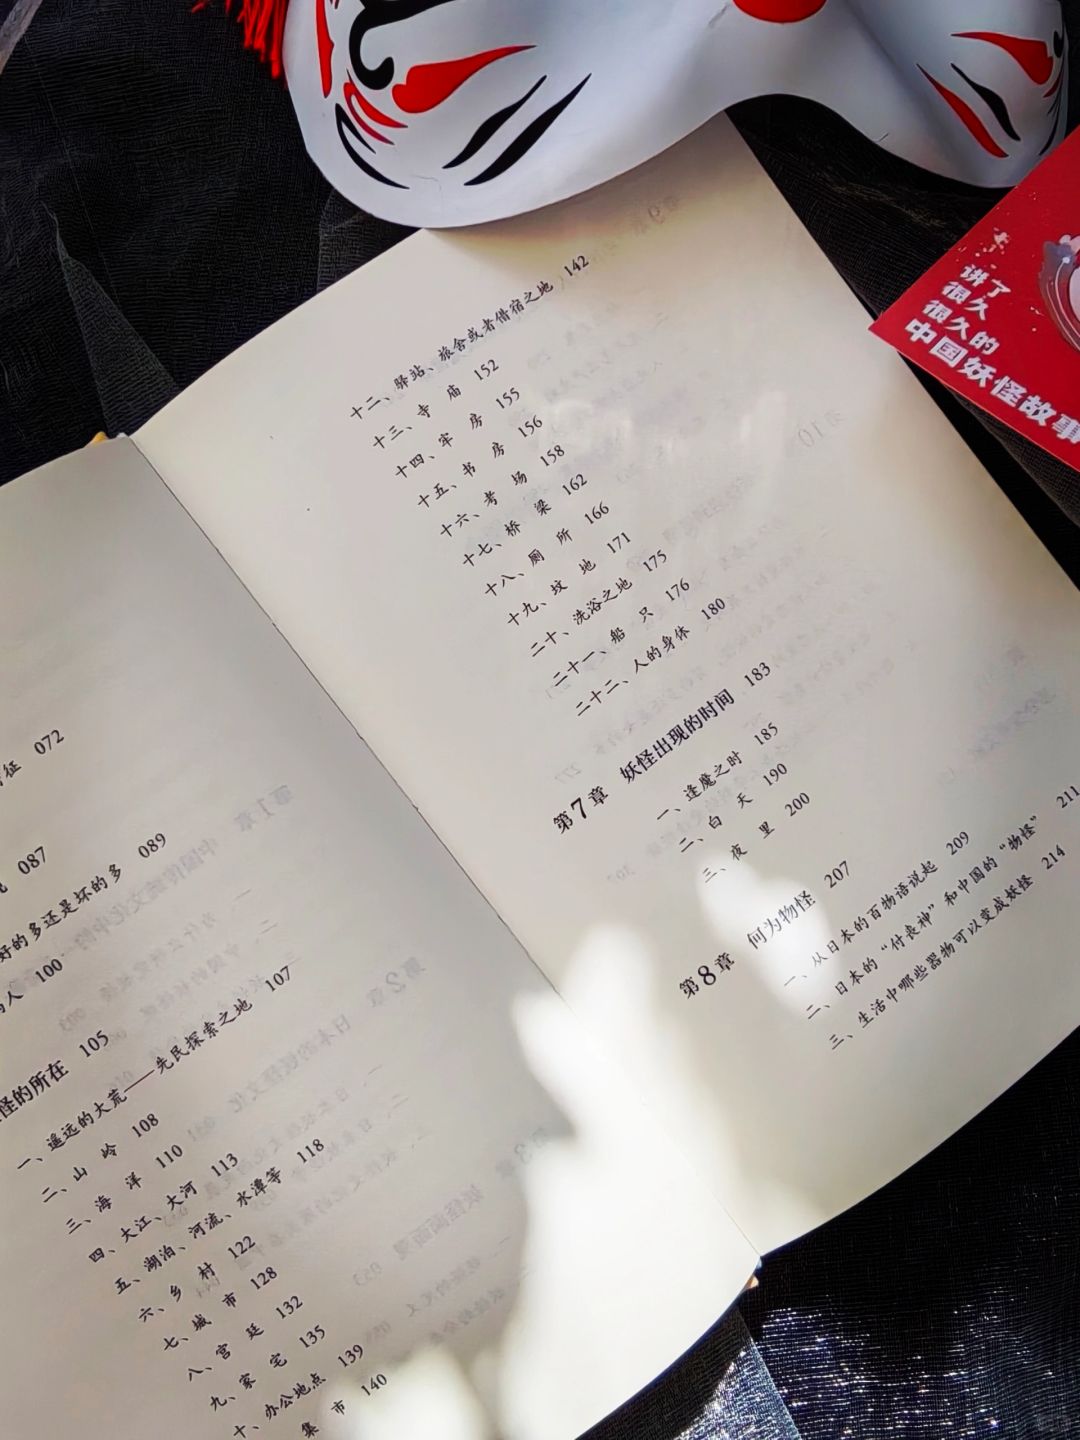 征 072
087
好的多还是坏的多 089
人 100
怪的所在 105
一、遥远的大荒——先民探索之地 107
二、山 岭 108
三、海 洋 110
四、大江、大河 113
五、湖泊、河流、水潭等 118
六、乡 村 122
七、城 市 128
八、宫 廷 132
九、家 宅 135
十、办公地点 139
集 市 140
十二、驿站、旅舍或者借宿之地 142
十三、寺 庙 152
十四、牢 房 155
十五、书 房 156
十六、考 场 158
十七、桥 梁 162
十八、厕 所 166
十九、坟 地 171
二十、洗浴之地 175
二十一、船 只 176
二十二、人的身体 180
第7章 妖怪出现的时间 183
一、逢魔之时 185
二、白 天 190
三、夜 里 200
第8章 何为物怪 207
一、从日本的百物语说起 209
二、日本的“付丧神”和中国的“物怪” 211
三、生活中哪些器物可以变成妖怪 214
讲了
很久
很久的
中国妖怪故事